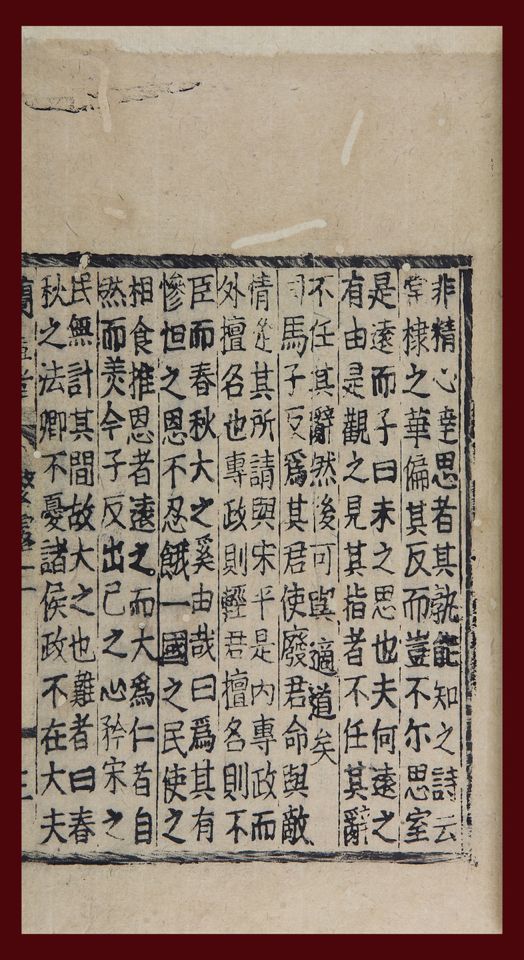 非精心達思者其孰能知之詩云
棠棣之華偏其反而豈不尔思室
是遠而子曰未之思也夫何遠之
有由是觀之見其指者不任其辭
不任其辭然後可與適道矣
司馬子反爲其君使廢君命與敵
情從其所請與宋平是内專政而
外擅名也專政則輕君擅名則不
臣而春秋大之奚由哉曰爲其有
慘怛之恩不忍餓一國之民使之
相食推恩者遠之而大爲仁者自
然而羙今子反出己之心矜宋之
民無計其間故大之也難者曰春
秋之法卿不憂諸侯政不在大夫
蘭雪堂 繁露二 三